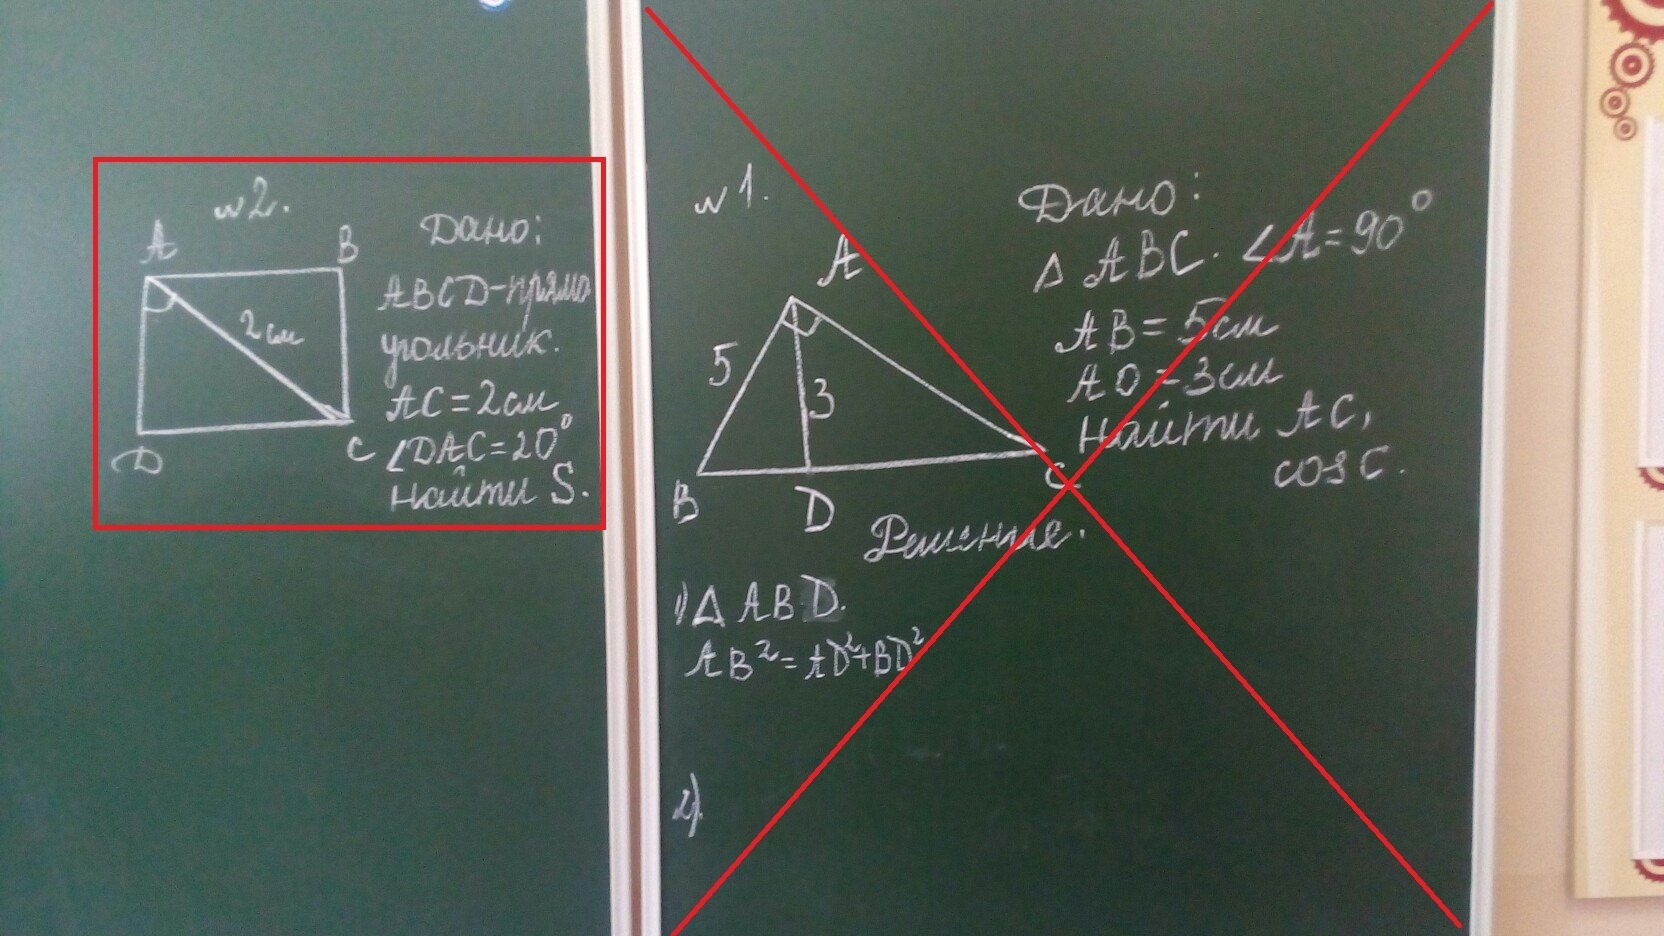 №2.
A
B
2 см
D
C
Дано:
ABCD-прямо
угольник.
AC=2см
∠DAC=20°
найти S.
№1.
A
5
3
B
D
C
Дано:
△ ABC. ∠A=90°
AB=5см
AD=3см
найти AC,
cos C.
Решение.
1) △ ABD.
AB²=AD²+BD²
2).